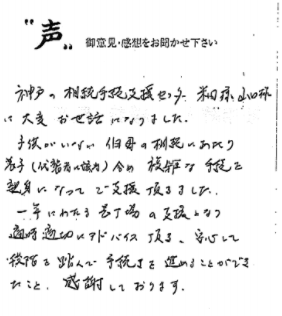 "声" 御意見・感想をお聞かせ下さい
神戸の相続手続支援センター 米田様 山口様
に大変お世話になりました。
子供がいない伯母の相続にあたり
養子(代襲者に協力)含め 複雑な手続を
親身になってご支援頂きました。
一年にわたる長丁場の支援となり
適時適切にアドバイス頂き、安心して
段階を踏んで手続きを進めることができ
たこと、感謝しております。